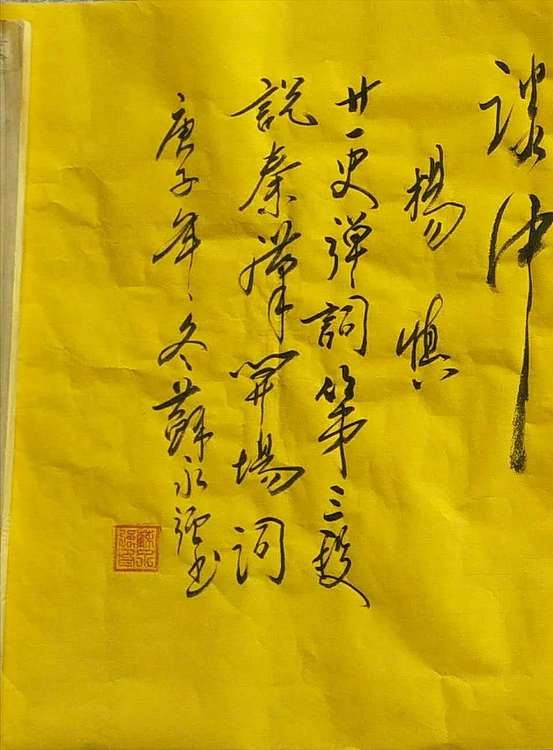 談中
楊慎
廿一史弹詞第三段
說秦漢開場詞
庚子年冬蘇永強書